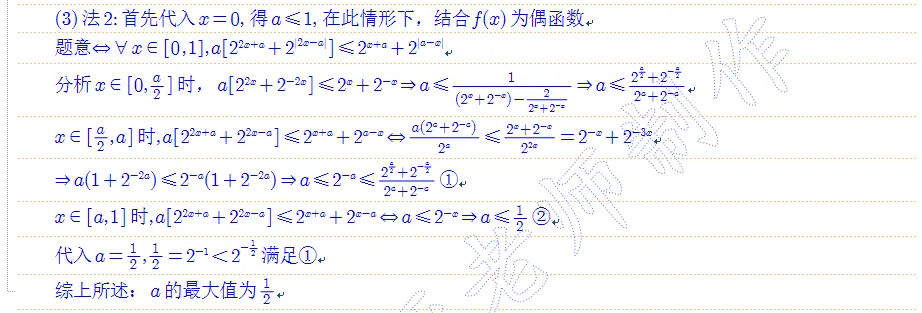 (3)法2:首先代入x=0,得a⩽1,在此情形下，结合f(x)为偶函数
题意⇔∀x∈[0,1],a[2^{2x+a}+2^{|2x-a|}]⩽2^{x+a}+2^{|a-x|}
分析x∈[0,\frac{a}{2}]时，a[2^{2x}+2^{-2x}]⩽2^{x}+2^{-x}⇒a⩽\frac{1}{(2^{x}+2^{-x})-\frac{2}{2^{x}+2^{-x}}}⇒a⩽\frac{2^{\frac{a}{2}}+2^{-\frac{a}{2}}}{2^{a}+2^{-a}}
x∈[\frac{a}{2},a]时,a[2^{2x+a}+2^{2x-a}]⩽2^{x+a}+2^{a-x}⇔\frac{a(2^{a}+2^{-a})}{2^{a}}⩽\frac{2^{x}+2^{-x}}{2^{2x}}=2^{-x}+2^{-3x}
⇒a(1+2^{-2a})⩽2^{-a}(1+2^{-2a})⇒a⩽2^{-a}⩽\frac{2^{\frac{a}{2}}+2^{-\frac{a}{2}}}{2^{a}+2^{-a}}①
x∈[a,1]时,a[2^{2x+a}+2^{2x-a}]⩽2^{x+a}+2^{x-a}⇔a⩽2^{-x}⇒a⩽\frac{1}{2}②
代入a=\frac{1}{2},\frac{1}{2}=2^{-1}<2^{-\frac{1}{2}}满足①
综上所述：a的最大值为\frac{1}{2}
老师制作